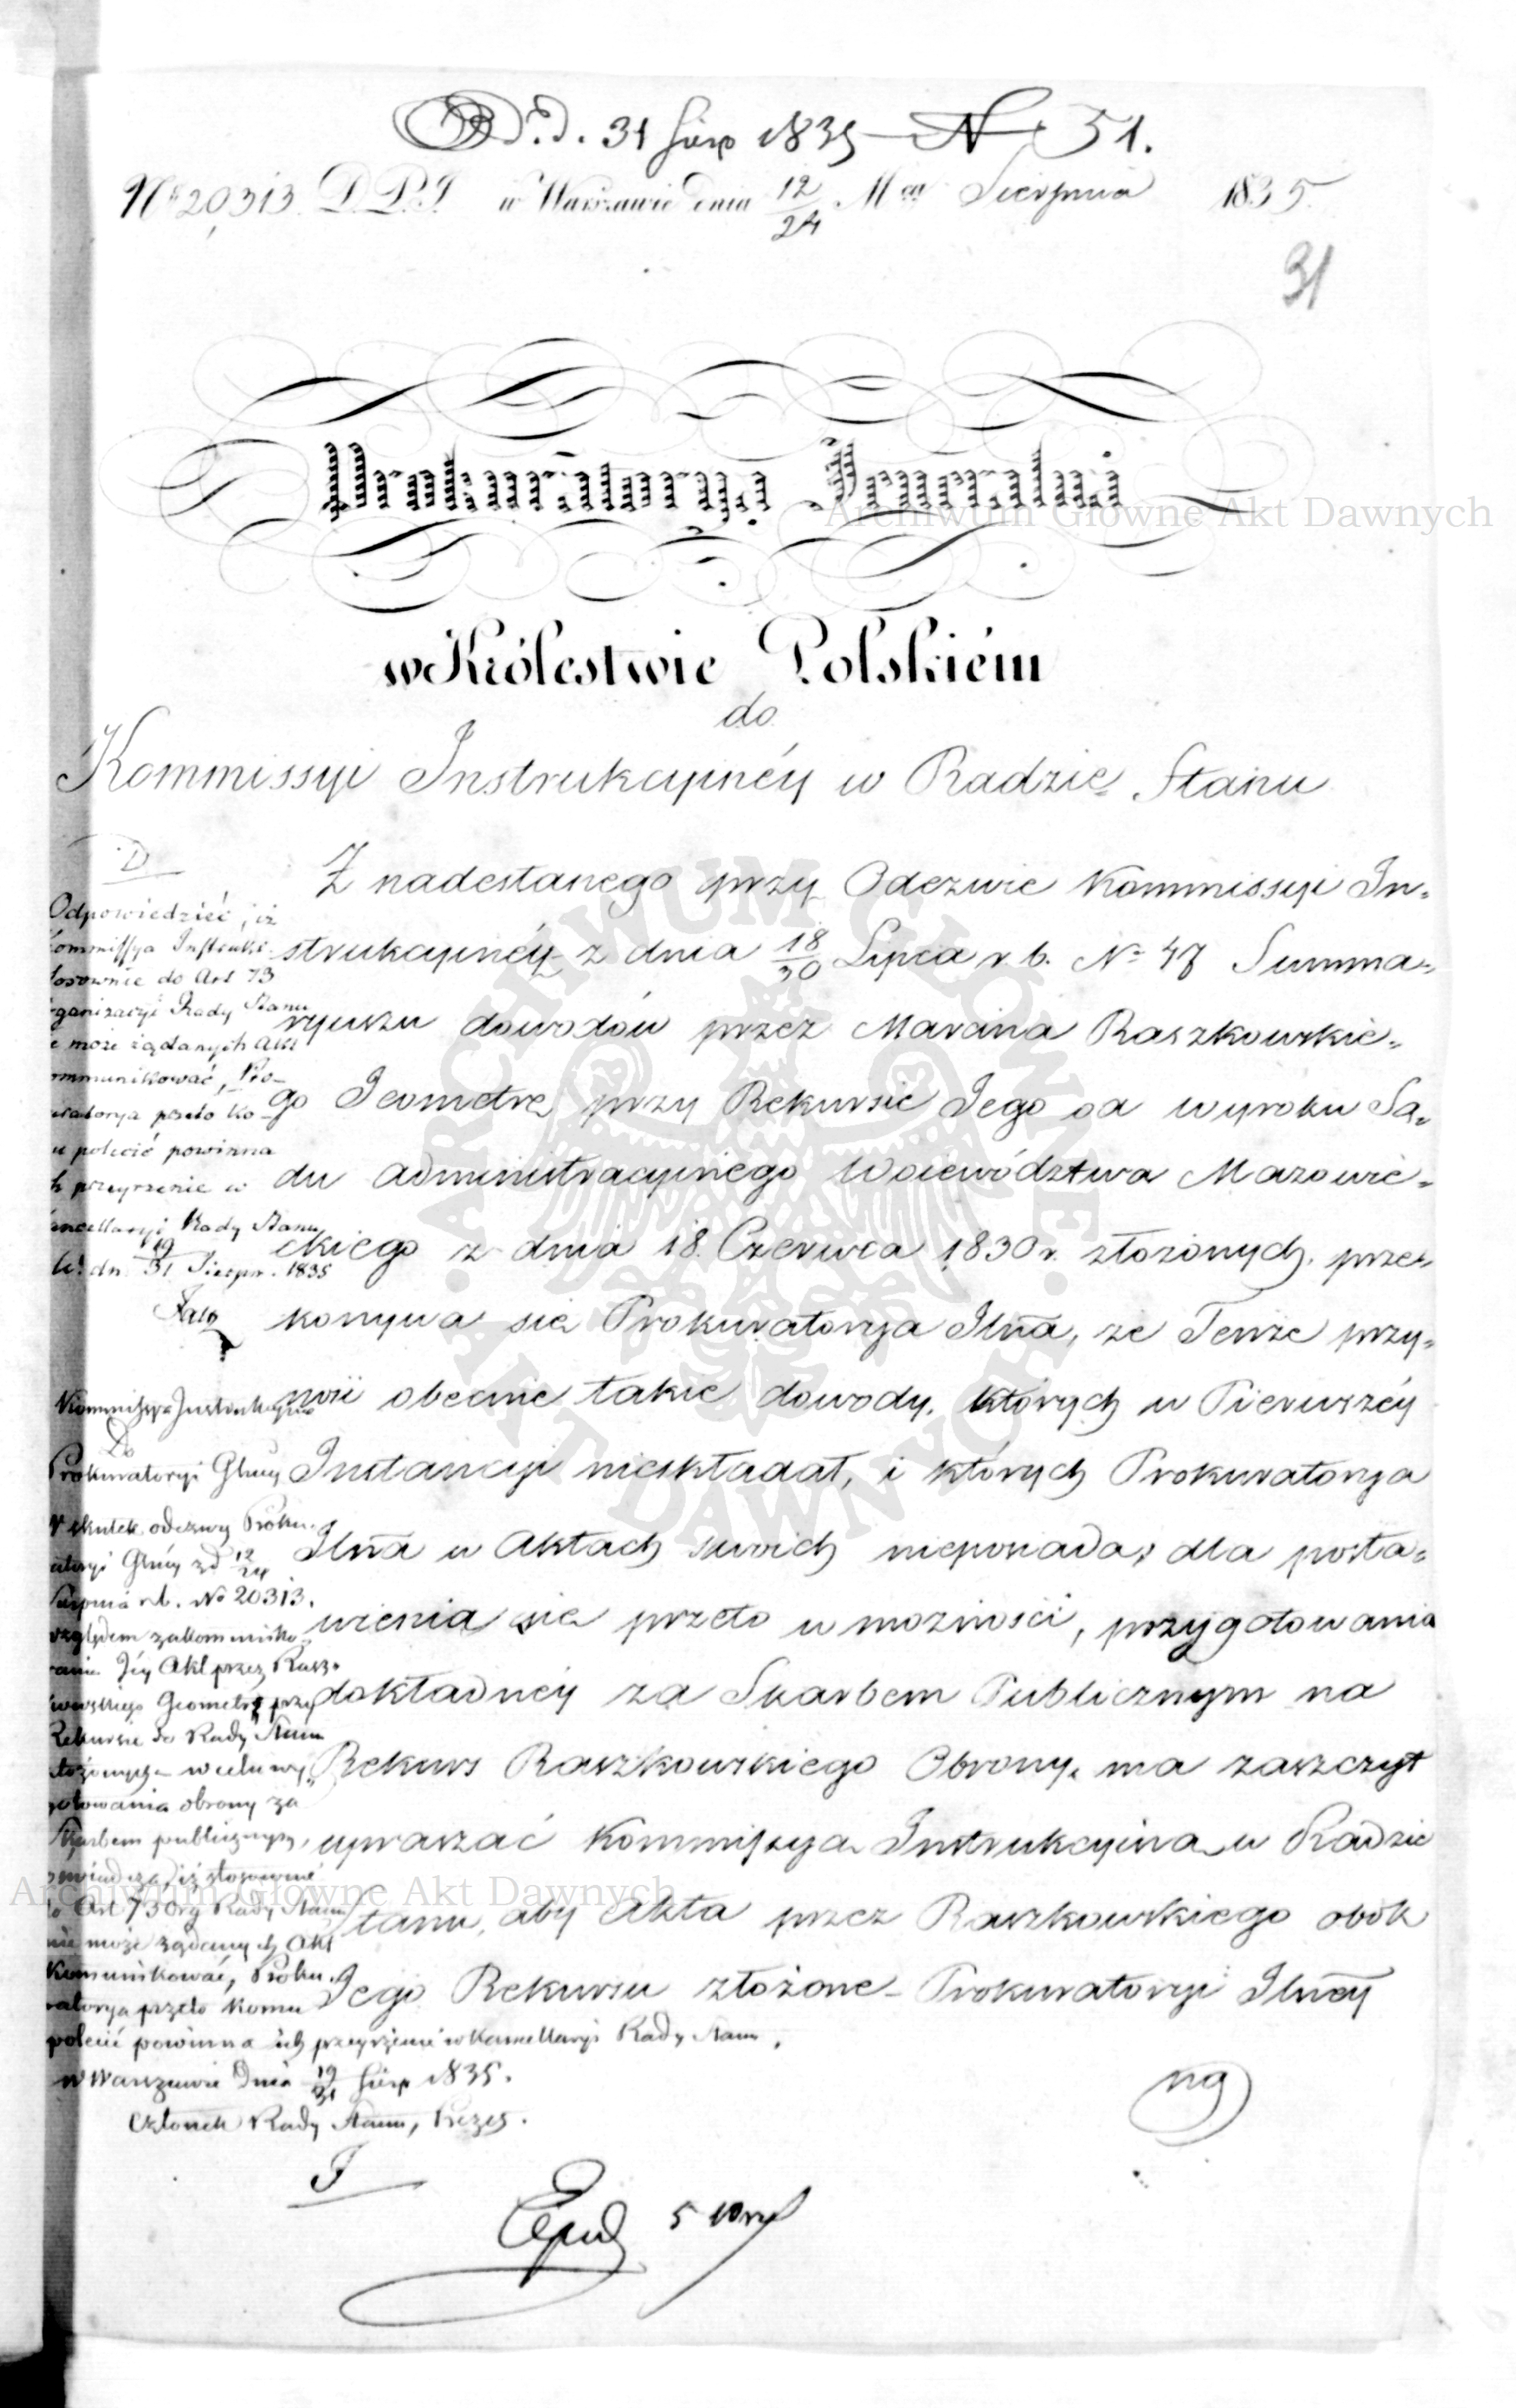 d. 31 Sierp 1835 N 51.
No 20,313. D.P.J. w Warszawie dnia 12/24 Mca Sierpnia 1835.
31
Prokuratorya Jeneralna
w Królestwie Polskiém
do
Kommissyi Instrukcyinéy w Radzie Stanu
Z nadesłanego przy Odezwie Kommissyi In=
strukcyinéy z dnia 18/30 Lipca r b. No 47 Summa=
ryuszu dowodów przez Marcina Raszkowskie=
go Jeometrę przy Rekursie Jego od wyroku Są=
du Administracyinego Woiewództwa Mazowie=
ckiego z dnia 18. Czerwca 1830 r. złożonych, prze=
konywa się Prokuratorya Jlna, że Tenże przy=
wiódł obecnie takie dowody, których w Pierwszéy
Instancyi nieskładał, i których Prokuratorya
Jlna w Aktach swoich nieposiada; dla posta=
wienia się przeto w możności, przygotowania
dokładnéy za Skarbem Publicznym na
Rekurs Raszkowskiego Obrony, ma zaszczyt
upraszać Kommissyą Instrukcyiną w Radzie
Stanu, aby Akta przez Raszkowskiego obok
Jego Rekursu złożone Prokuratoryi Jlnéy
D
Odpowiedzieć, iż
kommissya Instrukc.
stosownie do Art 73
organizacyi Rady Stanu
nie może żądanych Akt
kommunikować, Pro-
kuratorya przeto ko-
mu polecić powinna
ich przeyrzenie w
Kancellaryi Rady Stanu
W. dn. 19/31 Sierpn. 1835
Kommissya Instrukcyina
Do
Prokuratoryi Glney
W skutek odezwy Proku-
ratoryi Glnéy z d 12/24
Sierpnia r.b. No 20313.
względem zakommuniko-
wania Jéy Akt przez Rasz-
kowskiego Geometrę przy
Rekursie do Rady Stanu
złożonych w celu przy-
gotowania obrony za
Skarbem publicznym,
oświadcza, iż stosownie
do Art 73 Org Rady Stanu
nie może żądanych Akt
Kommunikować, Proku-
ratorya przeto komu
polecić powinna ich przeyrzenie w Kancellaryi Rady Stanu.
w Warszawie Dnia 19/31 Sierp 1835.
Członek Rady Stanu, Prezes.
Archiwum Główne Akt Dawnych
Archiwum Główne Akt Dawnych
ARCHIWUM GŁÓWNE
AKT DAWNYCH